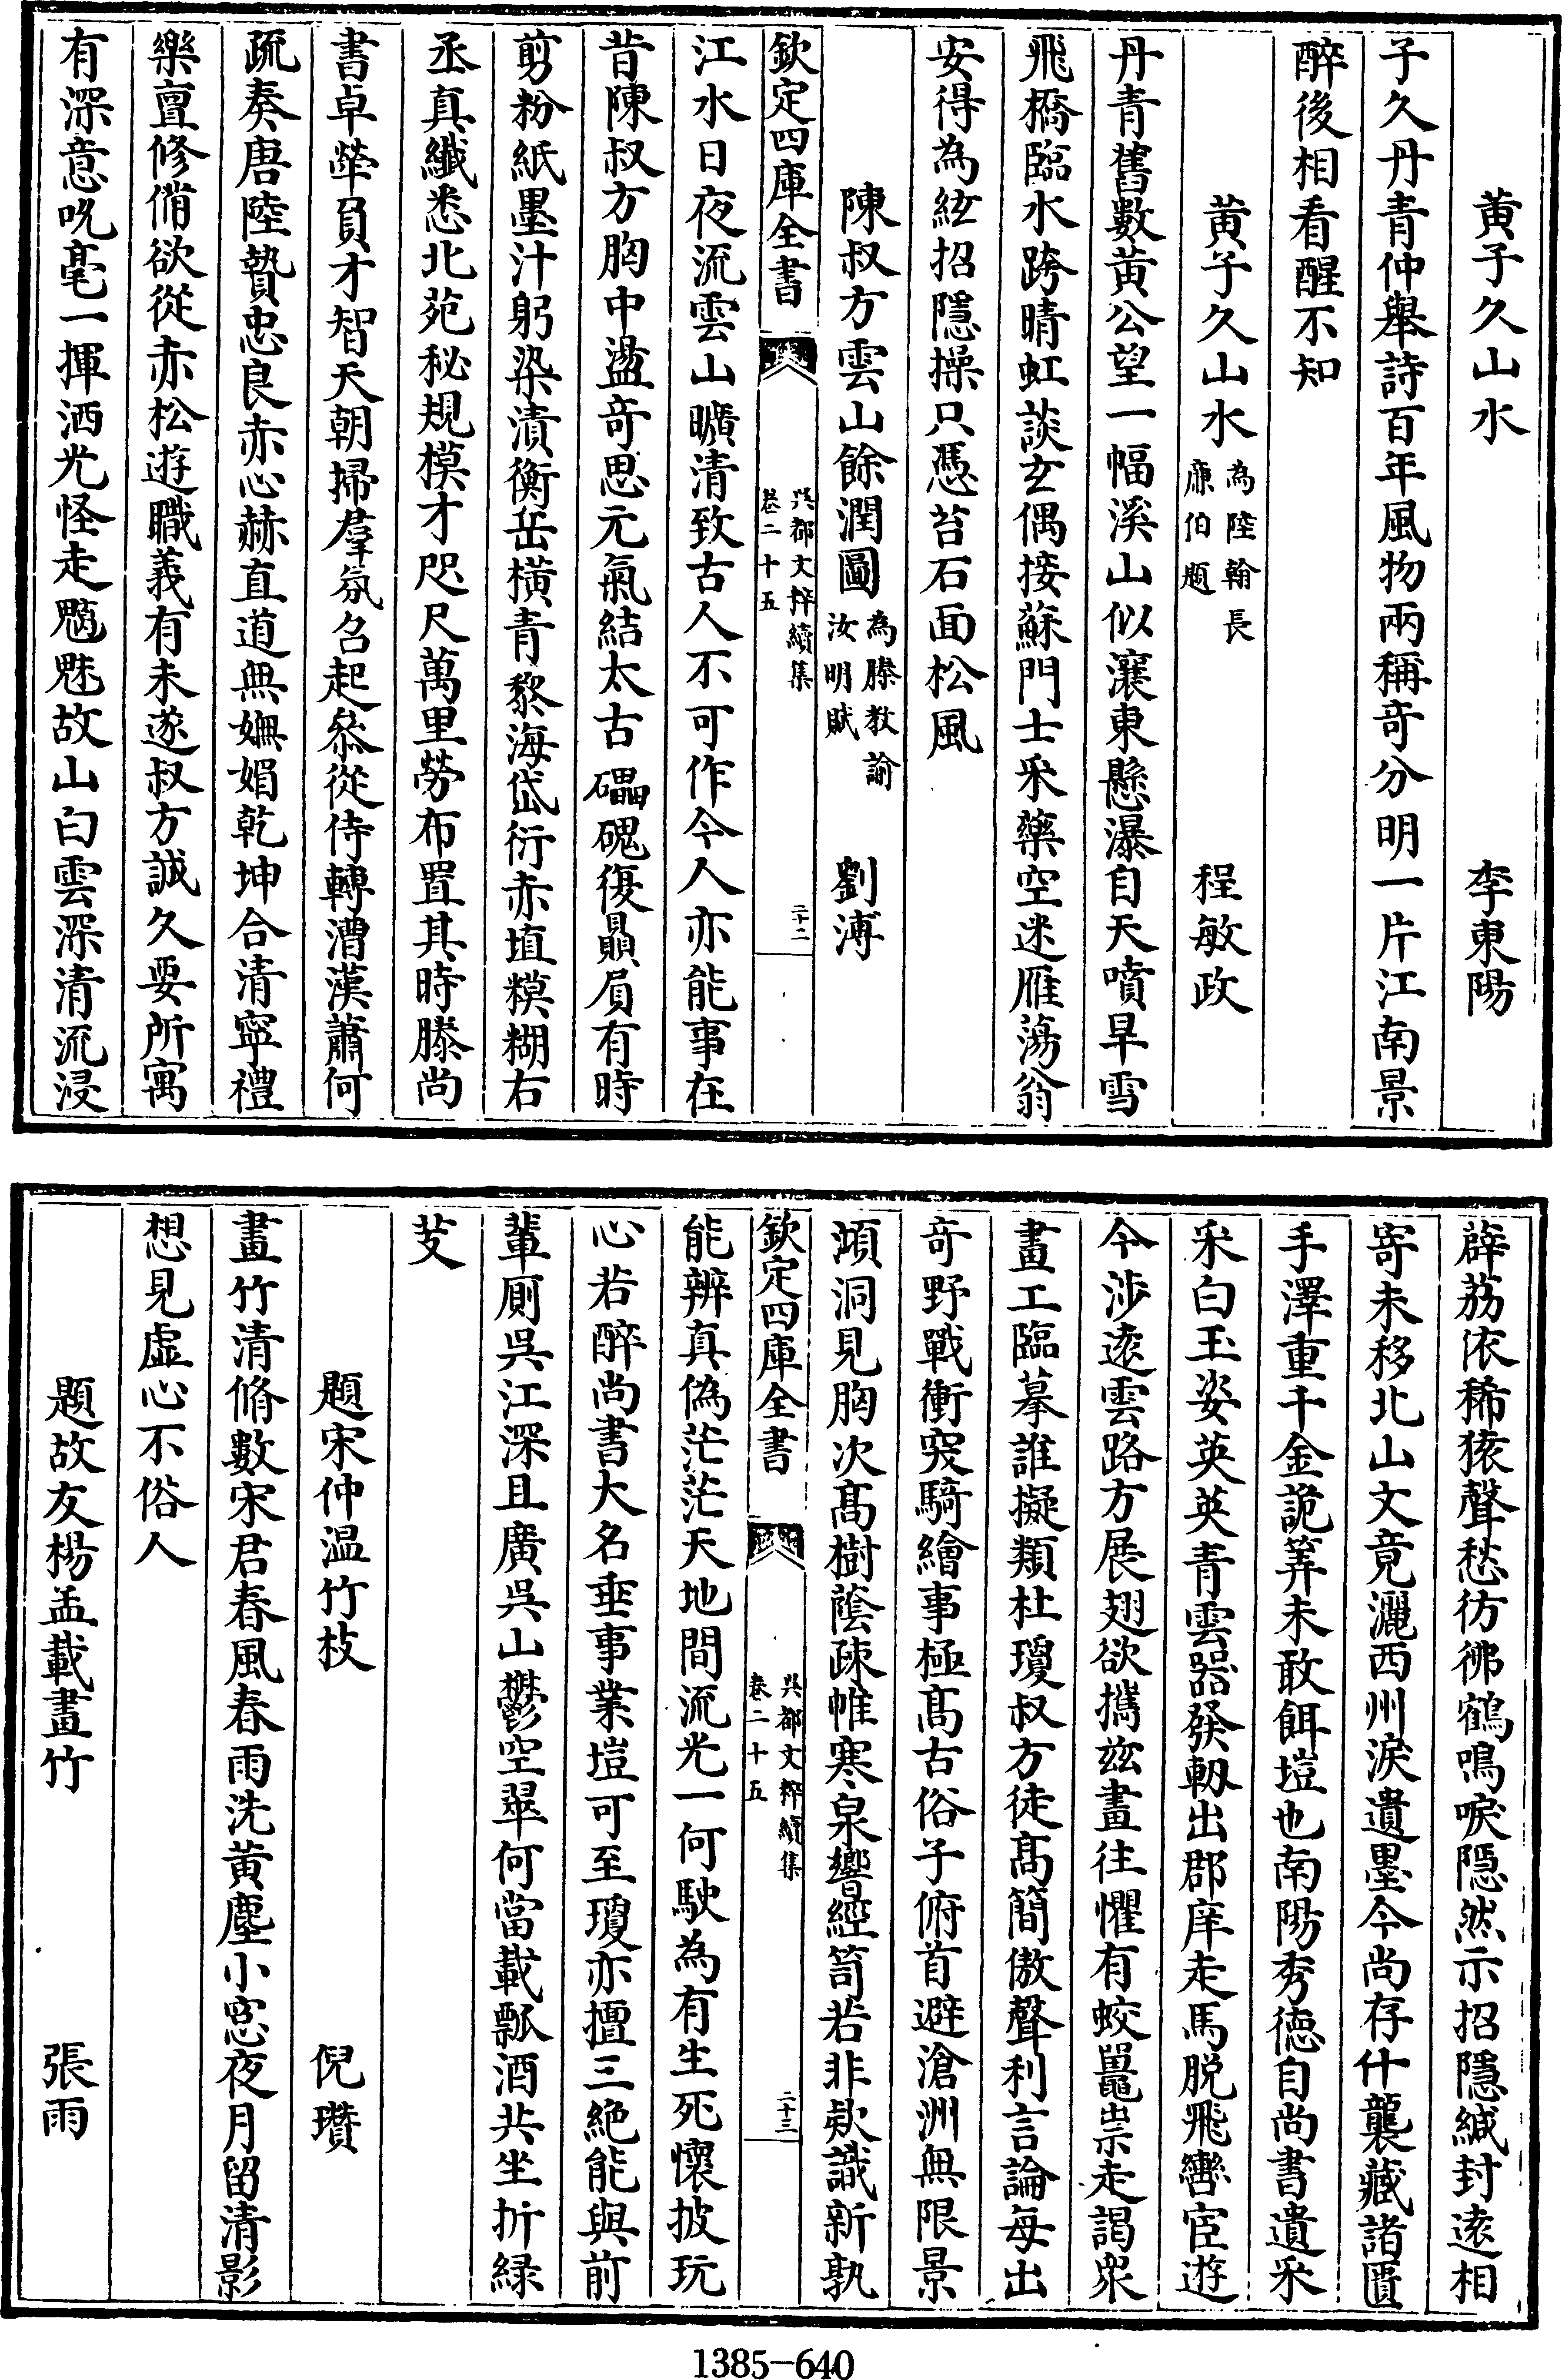 黄子久山水　李東陽
子久丹青仲舉詩百年風物兩稱奇分明一片江南景
醉後相看醒不知
黄子久山水為陸翰長廉伯題　程敏政
丹青舊數黄公望一幅溪山似瀼東懸瀑自天噴早雪
飛橋臨水跨晴虹談玄偶接蘇門士采藥空迷雁蕩翁
安得為絃招隱操只憑苔石面松風
陳叔方雲山餘潤圖為滕教諭汝明賦　劉溥
欽定四庫全書　吳都文粹續集卷二十五　二十二
江水日夜流雲山曠清致古人不可作今人亦能事在
昔陳叔方胸中盪奇思元氣結太古礧磈復贔屓有時
剪粉紙墨汁躬染漬衡岳横青黎海岱衍赤埴糢糊右
丞真纖悉北苑秘規模才咫尺萬里勞布置其時滕尚
書卓犖負才智天朝掃羣氛名起叅從侍轉漕漢蕭何
疏奏唐陸贄忠良赤心赫直道無嫵媚乾坤合清寧禮
樂亶修備欲從赤松遊職義有未遂叔方誠久要所寓
有深意吮毫一揮洒光怪走魑魅故山白雲深清流浸
薜荔依稀猿聲愁彷彿鶴鳴唳隠然示招隱緘封遠相
寄未移北山文竟灑西州淚遺墨今尚存什襲藏諸匱
手澤重千金詭筭未敢餌塏也南陽秀徳自尚書遺采
采白玉姿英英青雲器發軔出郡庠走馬脱飛轡宦遊
今涉遠雲路方展翅欲攜兹畫往懼有蛟鼉祟走謁衆
畫工臨摹誰擬類杜瓊叔方徒髙簡傲聲利言論每出
奇野戰衝突騎繪事極髙古俗子俯首避滄洲無限景
澒洞見胸次髙樹蔭疎帷寒泉響經笥若非欵識新孰
欽定四庫全書　吳都文粹續集卷二十五　二十三
能辨真偽茫茫天地間流光一何駛為有生死懷披玩
心若醉尚書大名垂事業塏可至瓊亦擅三絶能與前
輩厠吳江深且廣吳山鬱空翠何當載瓢酒共坐折緑
芰
題宋仲温竹枝　倪瓚
畫竹清脩數宋君春風春雨洗黄塵小窓夜月留清影
想見虚心不俗人
題故友楊孟載畫竹　張雨
1385-640